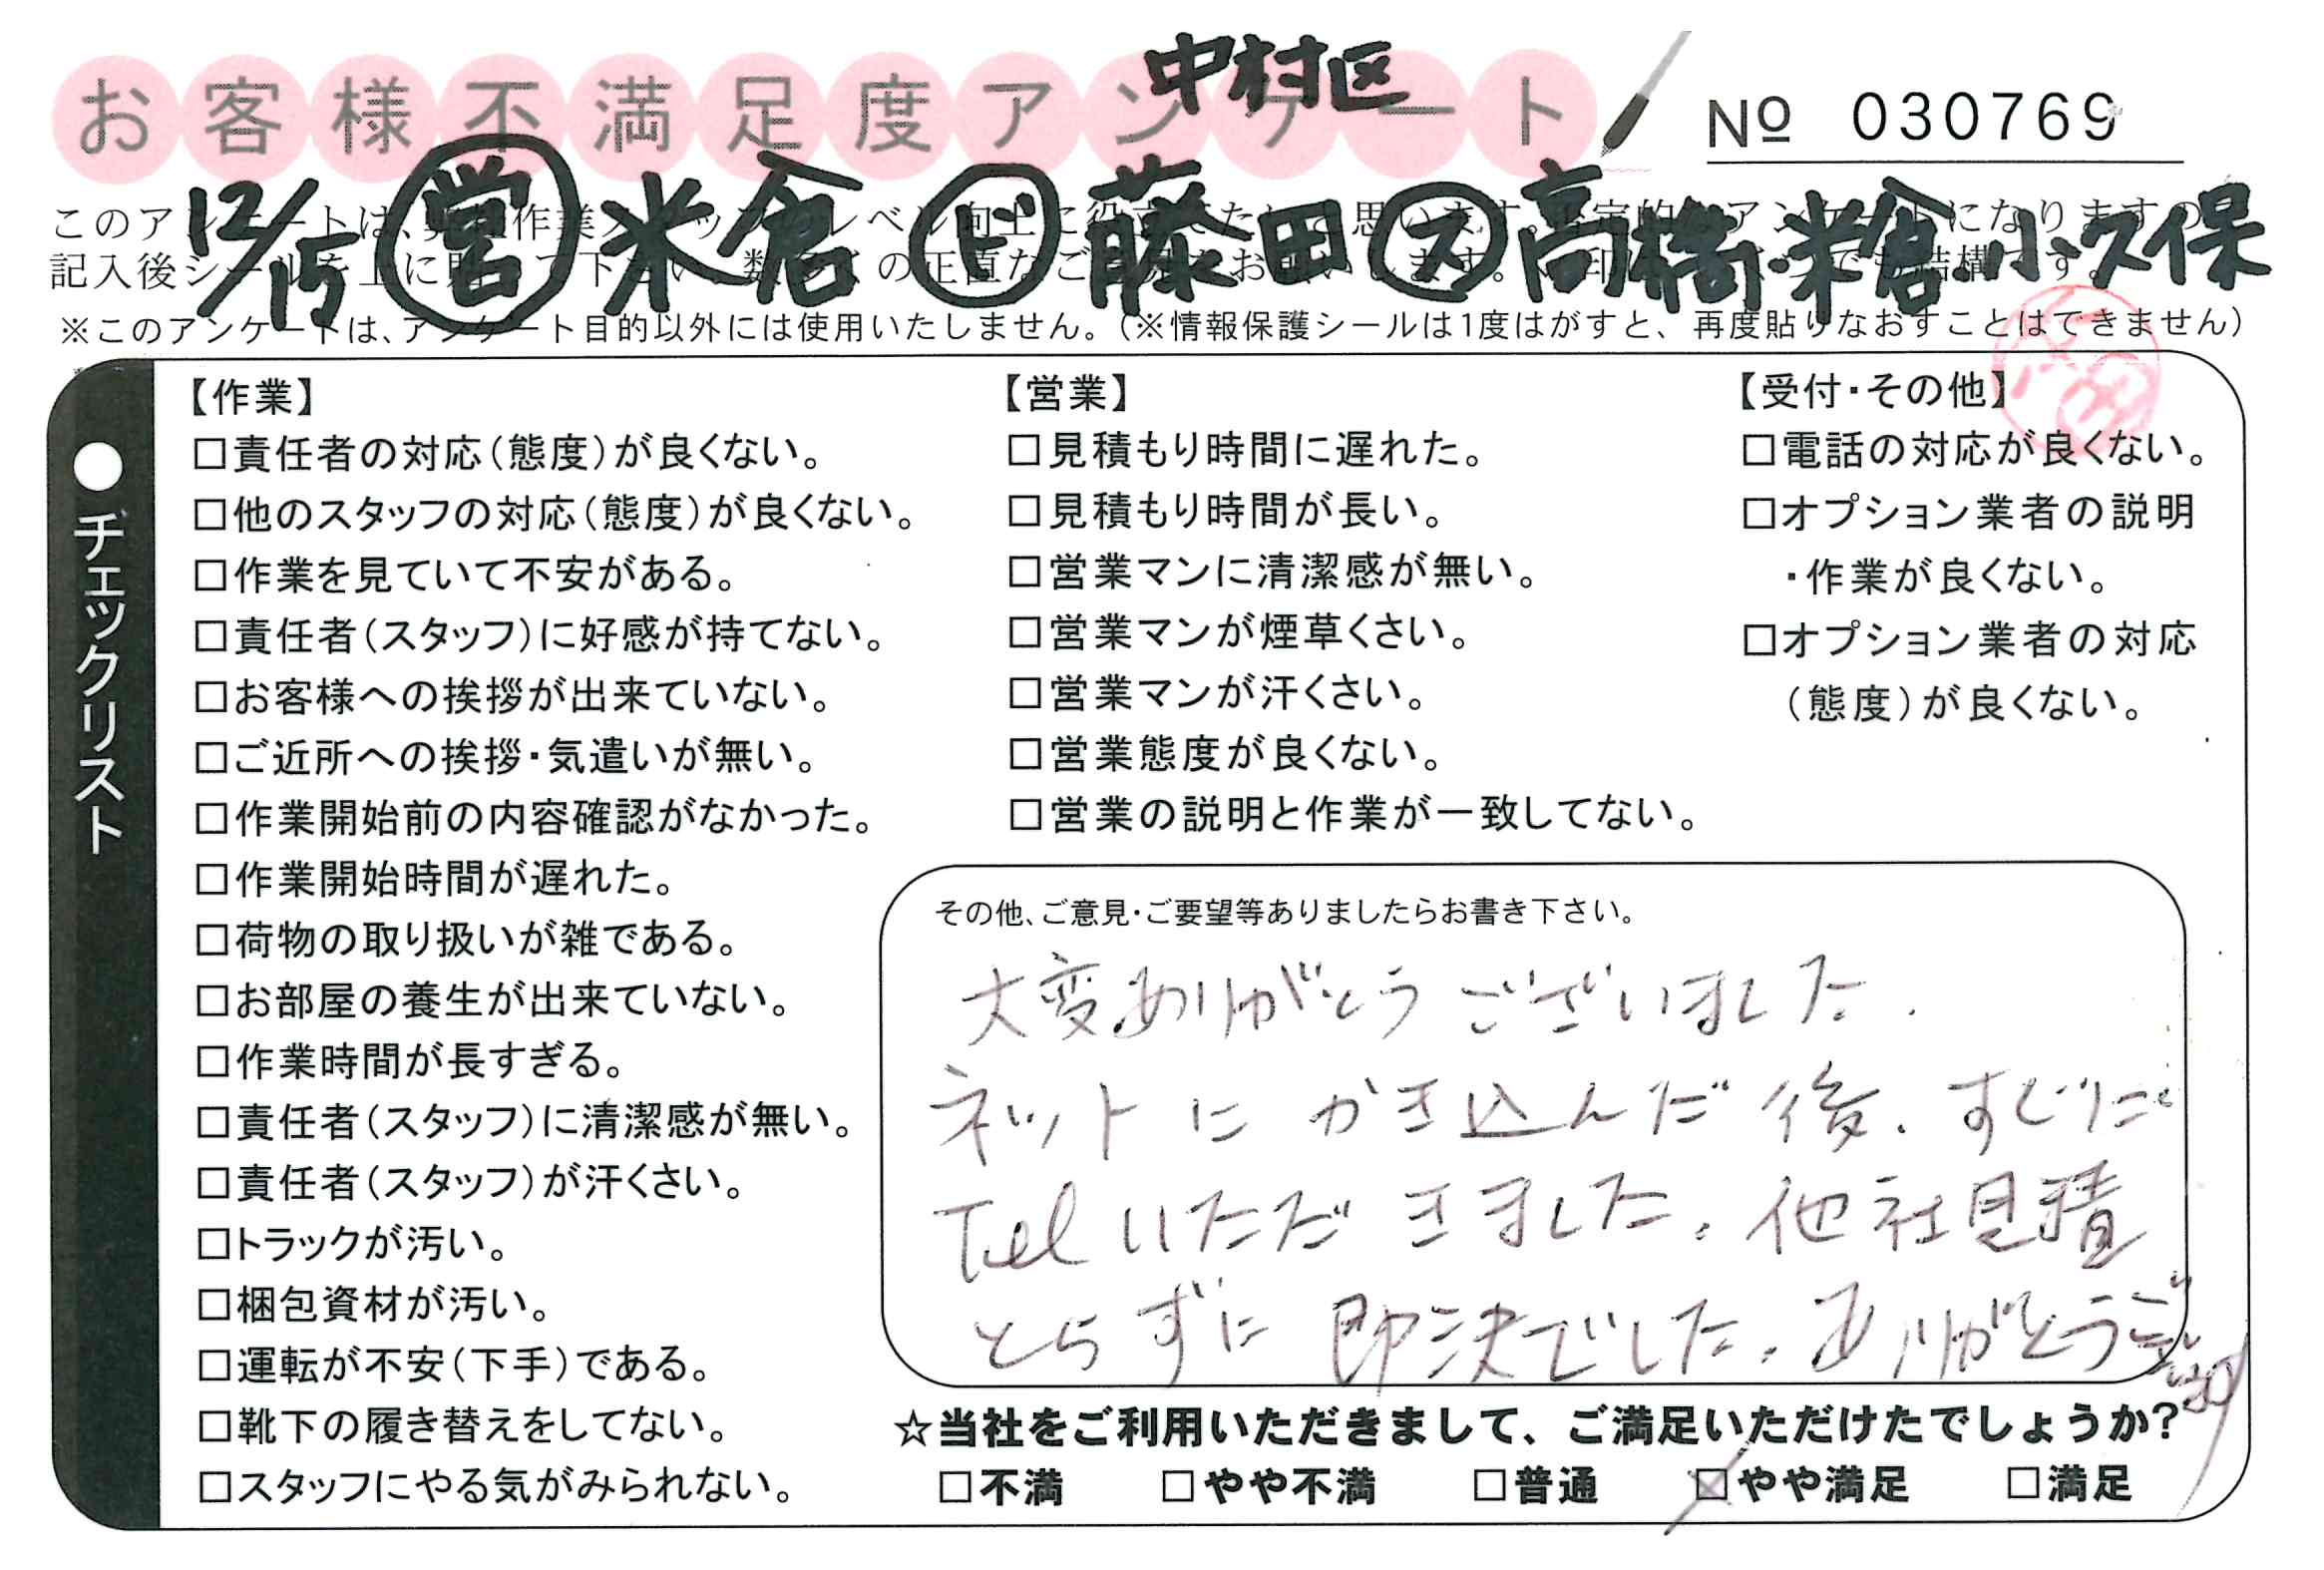 中村区
お客様不満足度アンケート
№ 030769
12/15 営 米倉 ド 藤田 ス 高橋・米倉 小久保
記入後シールを上に貼って下さい。
※このアンケートは、アンケート目的以外には使用いたしません。（※情報保護シールは1度はがすと、再度貼りなおすことはできません）
●チェックリスト
【作業】
□責任者の対応（態度）が良くない。
□他のスタッフの対応（態度）が良くない。
□作業を見ていて不安がある。
□責任者（スタッフ）に好感が持てない。
□お客様への挨拶が出来ていない。
□ご近所への挨拶・気遣いが無い。
□作業開始前の内容確認がなかった。
□作業開始時間が遅れた。
□荷物の取り扱いが雑である。
□お部屋の養生が出来ていない。
□作業時間が長すぎる。
□責任者（スタッフ）に清潔感が無い。
□責任者（スタッフ）が汗くさい。
□トラックが汚い。
□梱包資材が汚い。
□運転が不安（下手）である。
□靴下の履き替えをしてない。
□スタッフにやる気がみられない。
【営業】
□見積もり時間に遅れた。
□見積もり時間が長い。
□営業マンに清潔感が無い。
□営業マンが煙草くさい。
□営業マンが汗くさい。
□営業態度が良くない。
□営業の説明と作業が一致してない。
【受付・その他】
□電話の対応が良くない。
□オプション業者の説明
・作業が良くない。
□オプション業者の対応
（態度）が良くない。
その他、ご意見・ご要望等ありましたらお書き下さい。
大変ありがとうございました.
ネットにかき込んだ後、すぐに
Telいただきました。他社見積
とらずに即決でした。ありがとうございます
☆当社をご利用いただきまして、ご満足いただけたでしょうか？
□不満 □やや不満 □普通 ☒やや満足 □満足